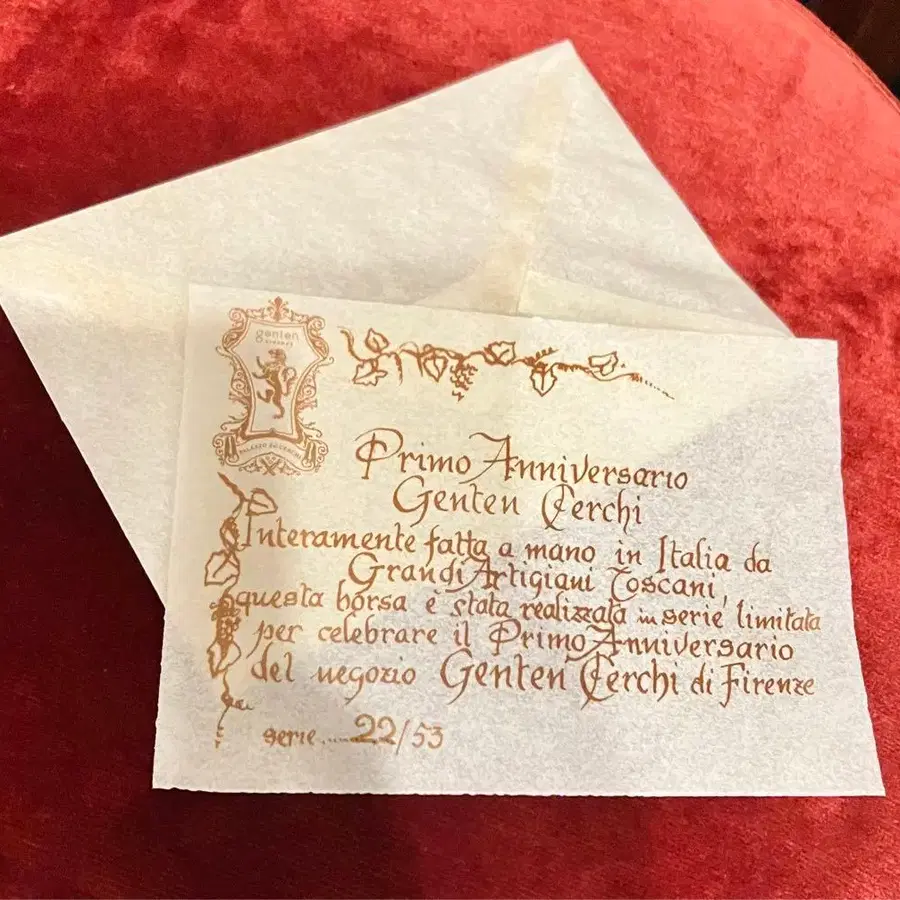 genten
FIRENZE
PALAZZO DEI CERCHI
Primo Anniversario
Genten Cerchi
Interamente fatta a mano in Italia da
Grandi Artigiani Toscani,
questa borsa è stata realizzata in serie limitata
per celebrare il Primo Anniversario
del negozio Genten Cerchi di Firenze
serie.....22/53